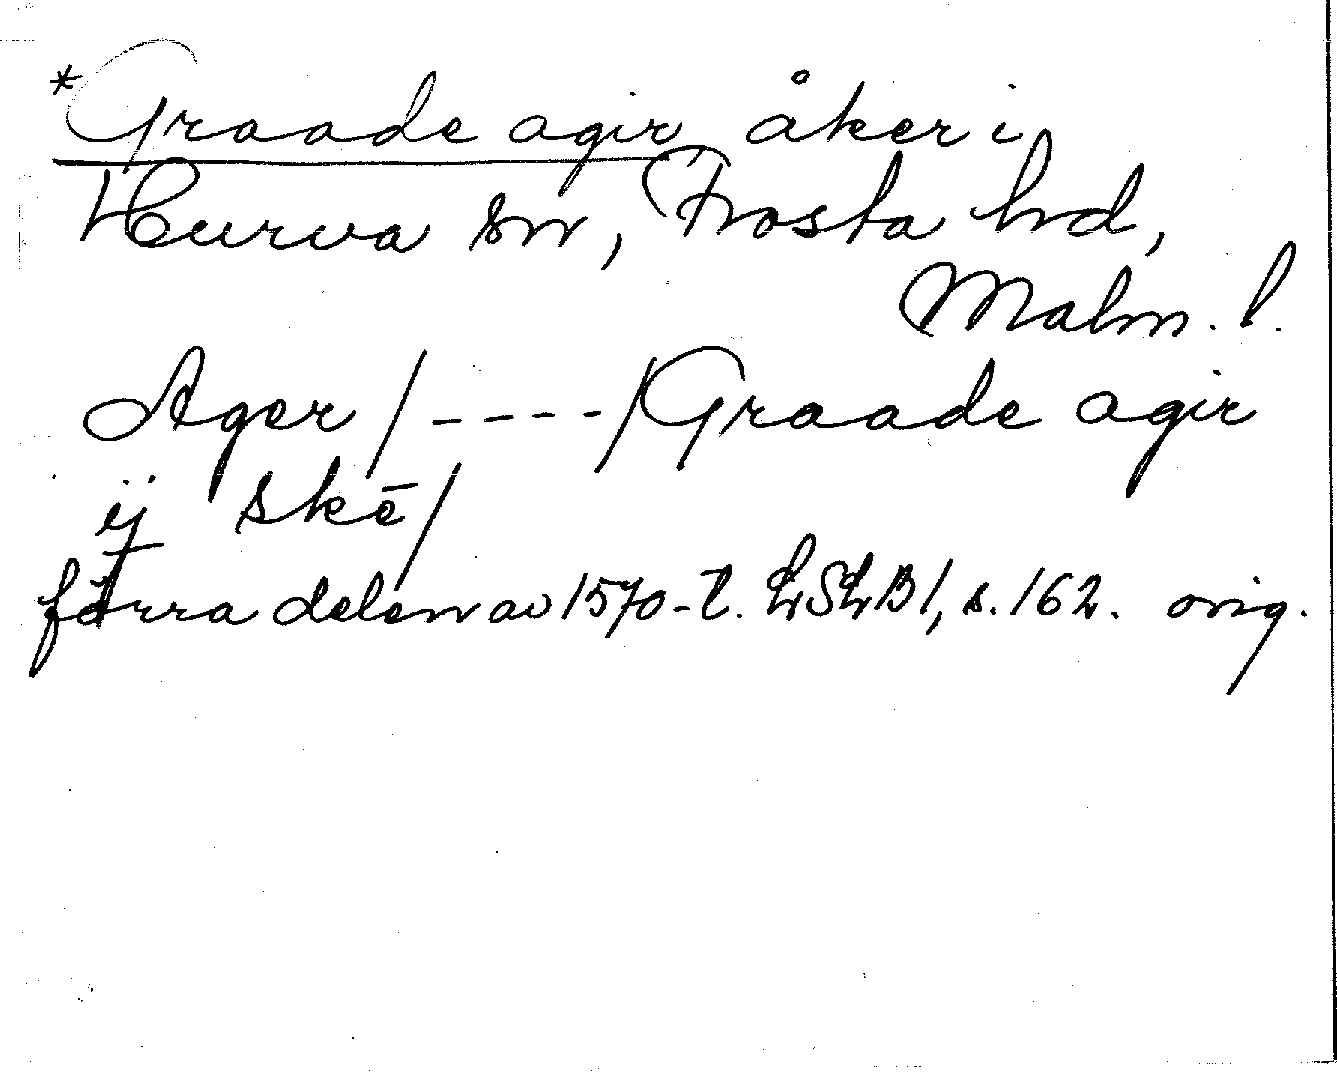 *Graade agir, åker i
Hurva sn, Frosta hd,
Malm. l.
Ager /----/ Graade agir
ij skē /
förra delen av 1570-t. LSLB 1, s. 162. orig.